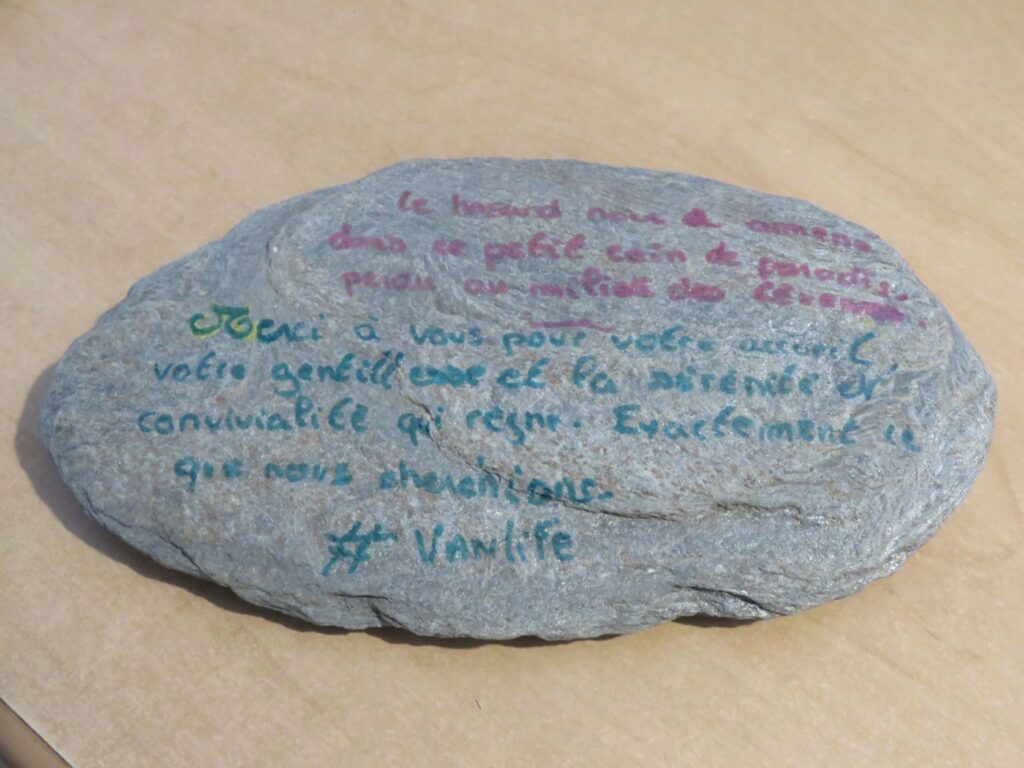 Le hasard nous a amené
dans ce petit coin de paradis
perdu au milieu des Cévennes
Merci à vous pour votre accueil,
votre gentillesse et la sérénité et
convivialité qui règne. Exactement ce
que nous cherchions.
# VANlife